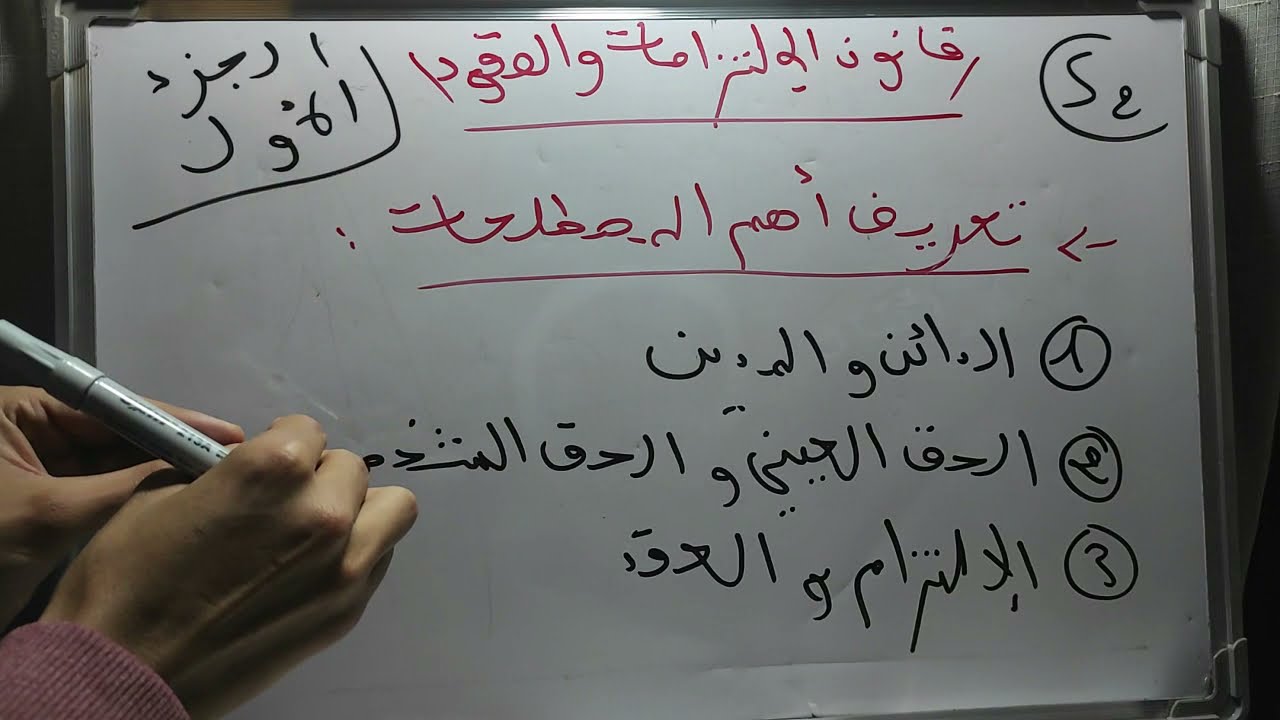 S2
قانون الإلتزامات والعقود
الجزء
الأول
← تعريف أهم المصطلحات :
① الدائن و المدين
② الحق العيني و الحق الشخصـ
③ الإلتزام و العقد